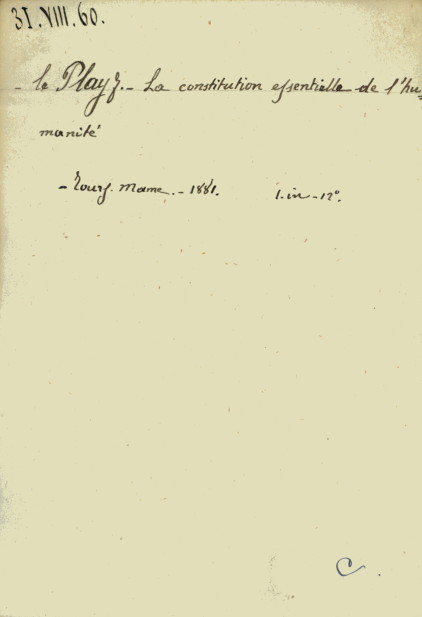 31.VIII.60.
- le Play F. - La constitution essentielle de l'hu=
manité
- Tours. Mame. - 1881. 1. in-12°.
C.